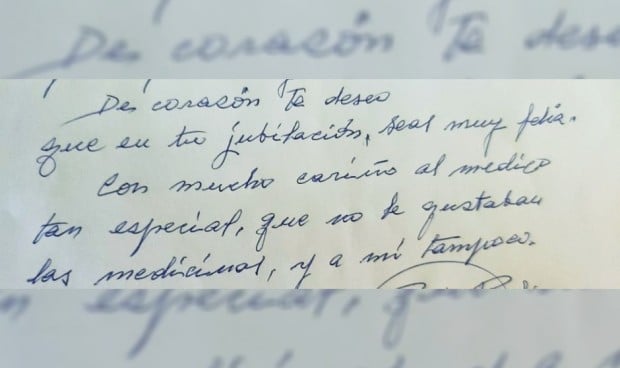 De corazón Te dese
De corazón Te deseo
que en tu jubilación, seas muy feliz.
Con mucho cariño al medico
tan especial, que no le gustaban
las medicinas, y a mi tampoco.
n especial, que